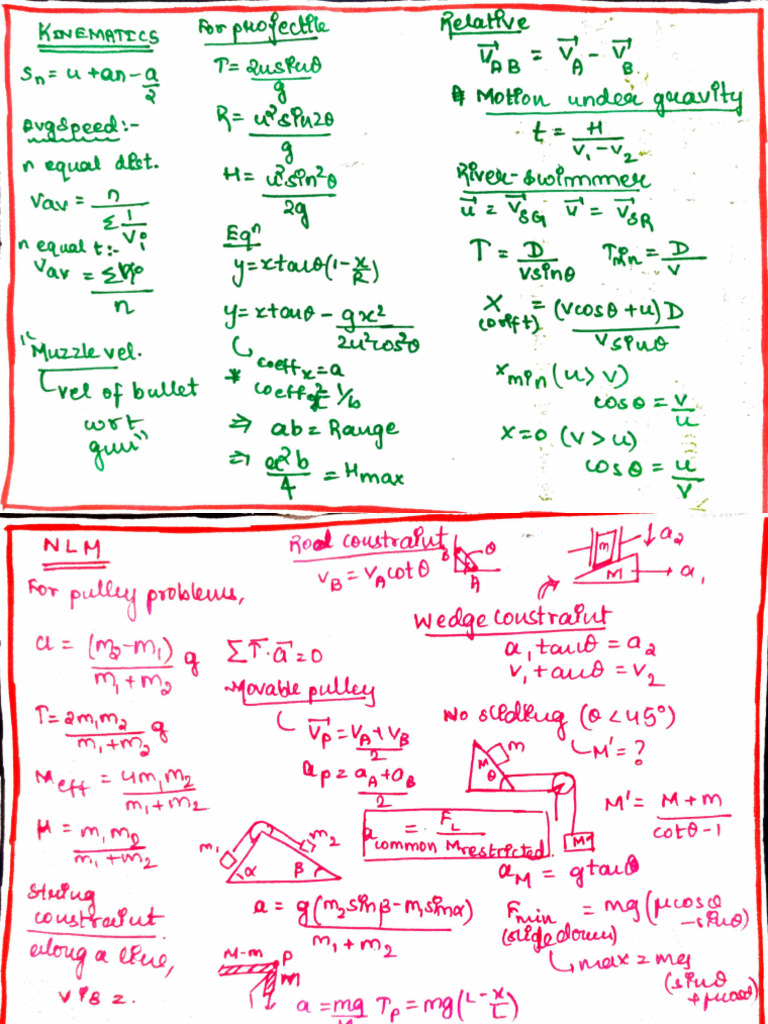 KINEMATICS
Sn = u + an - a/2
Avg speed :-
n equal dist.
Vav = n / Σ 1/Vi
n equal t :-
Vav = ΣVi / n
"Muzzle vel.
vel of bullet
wrt
gun"
For projectile
T = 2usinθ / g
R = u² sin2θ / g
H = u² sin²θ / 2g
Eqⁿ
y = x tanθ (1 - x/R)
y = x tanθ - gx² / 2u²cos²θ
* coeff x = a
coeff x² = 1/b
⇒ ab = Range
⇒ a²b / 4 = Hmax
Relative
V⃗AB = V⃗A - V⃗B
* Motion under gravity
t = H / V1 - V2
River-swimmer
u⃗ = V⃗SG v⃗ = V⃗SR
T = D / vsinθ Tmin = D / v
x (drift) = (vcosθ + u) D / vsinθ
xmin (u > v)
cosθ = v/u
x = 0 (v > u)
cosθ = u/v
NLM
For pulley problems,
a = (m2 - m1) / m1 + m2 g
T = 2m1m2 / m1 + m2 g
Meff = 4m1m2 / m1 + m2
μ = m1m2 / m1 + m2
String
constraint
along a line,
v is z.
Rod constraint
VB = VA cotθ
B θ
A
ΣT⃗·a⃗ = 0
Movable pulley
V⃗P = VA + VB / 2
aP = aA + aB / 2
a common = FL / M restricted
m1 m2
α β
a = g(m2 sinβ - m1 sinα) / m1 + m2
M-m P
m
a = mg / M TP = mg(L - x / L)
m a2
M a1
Wedge constraint
a1 tanθ = a2
v1 tanθ = v2
No sliding (θ < 45°)
M' = ?
m
M
θ
M'
M' = M + m / cotθ - 1
aM = g tanθ
Fmin (slide down) = mg(μcosθ - sinθ)
max = mg (sinθ + μcosθ)